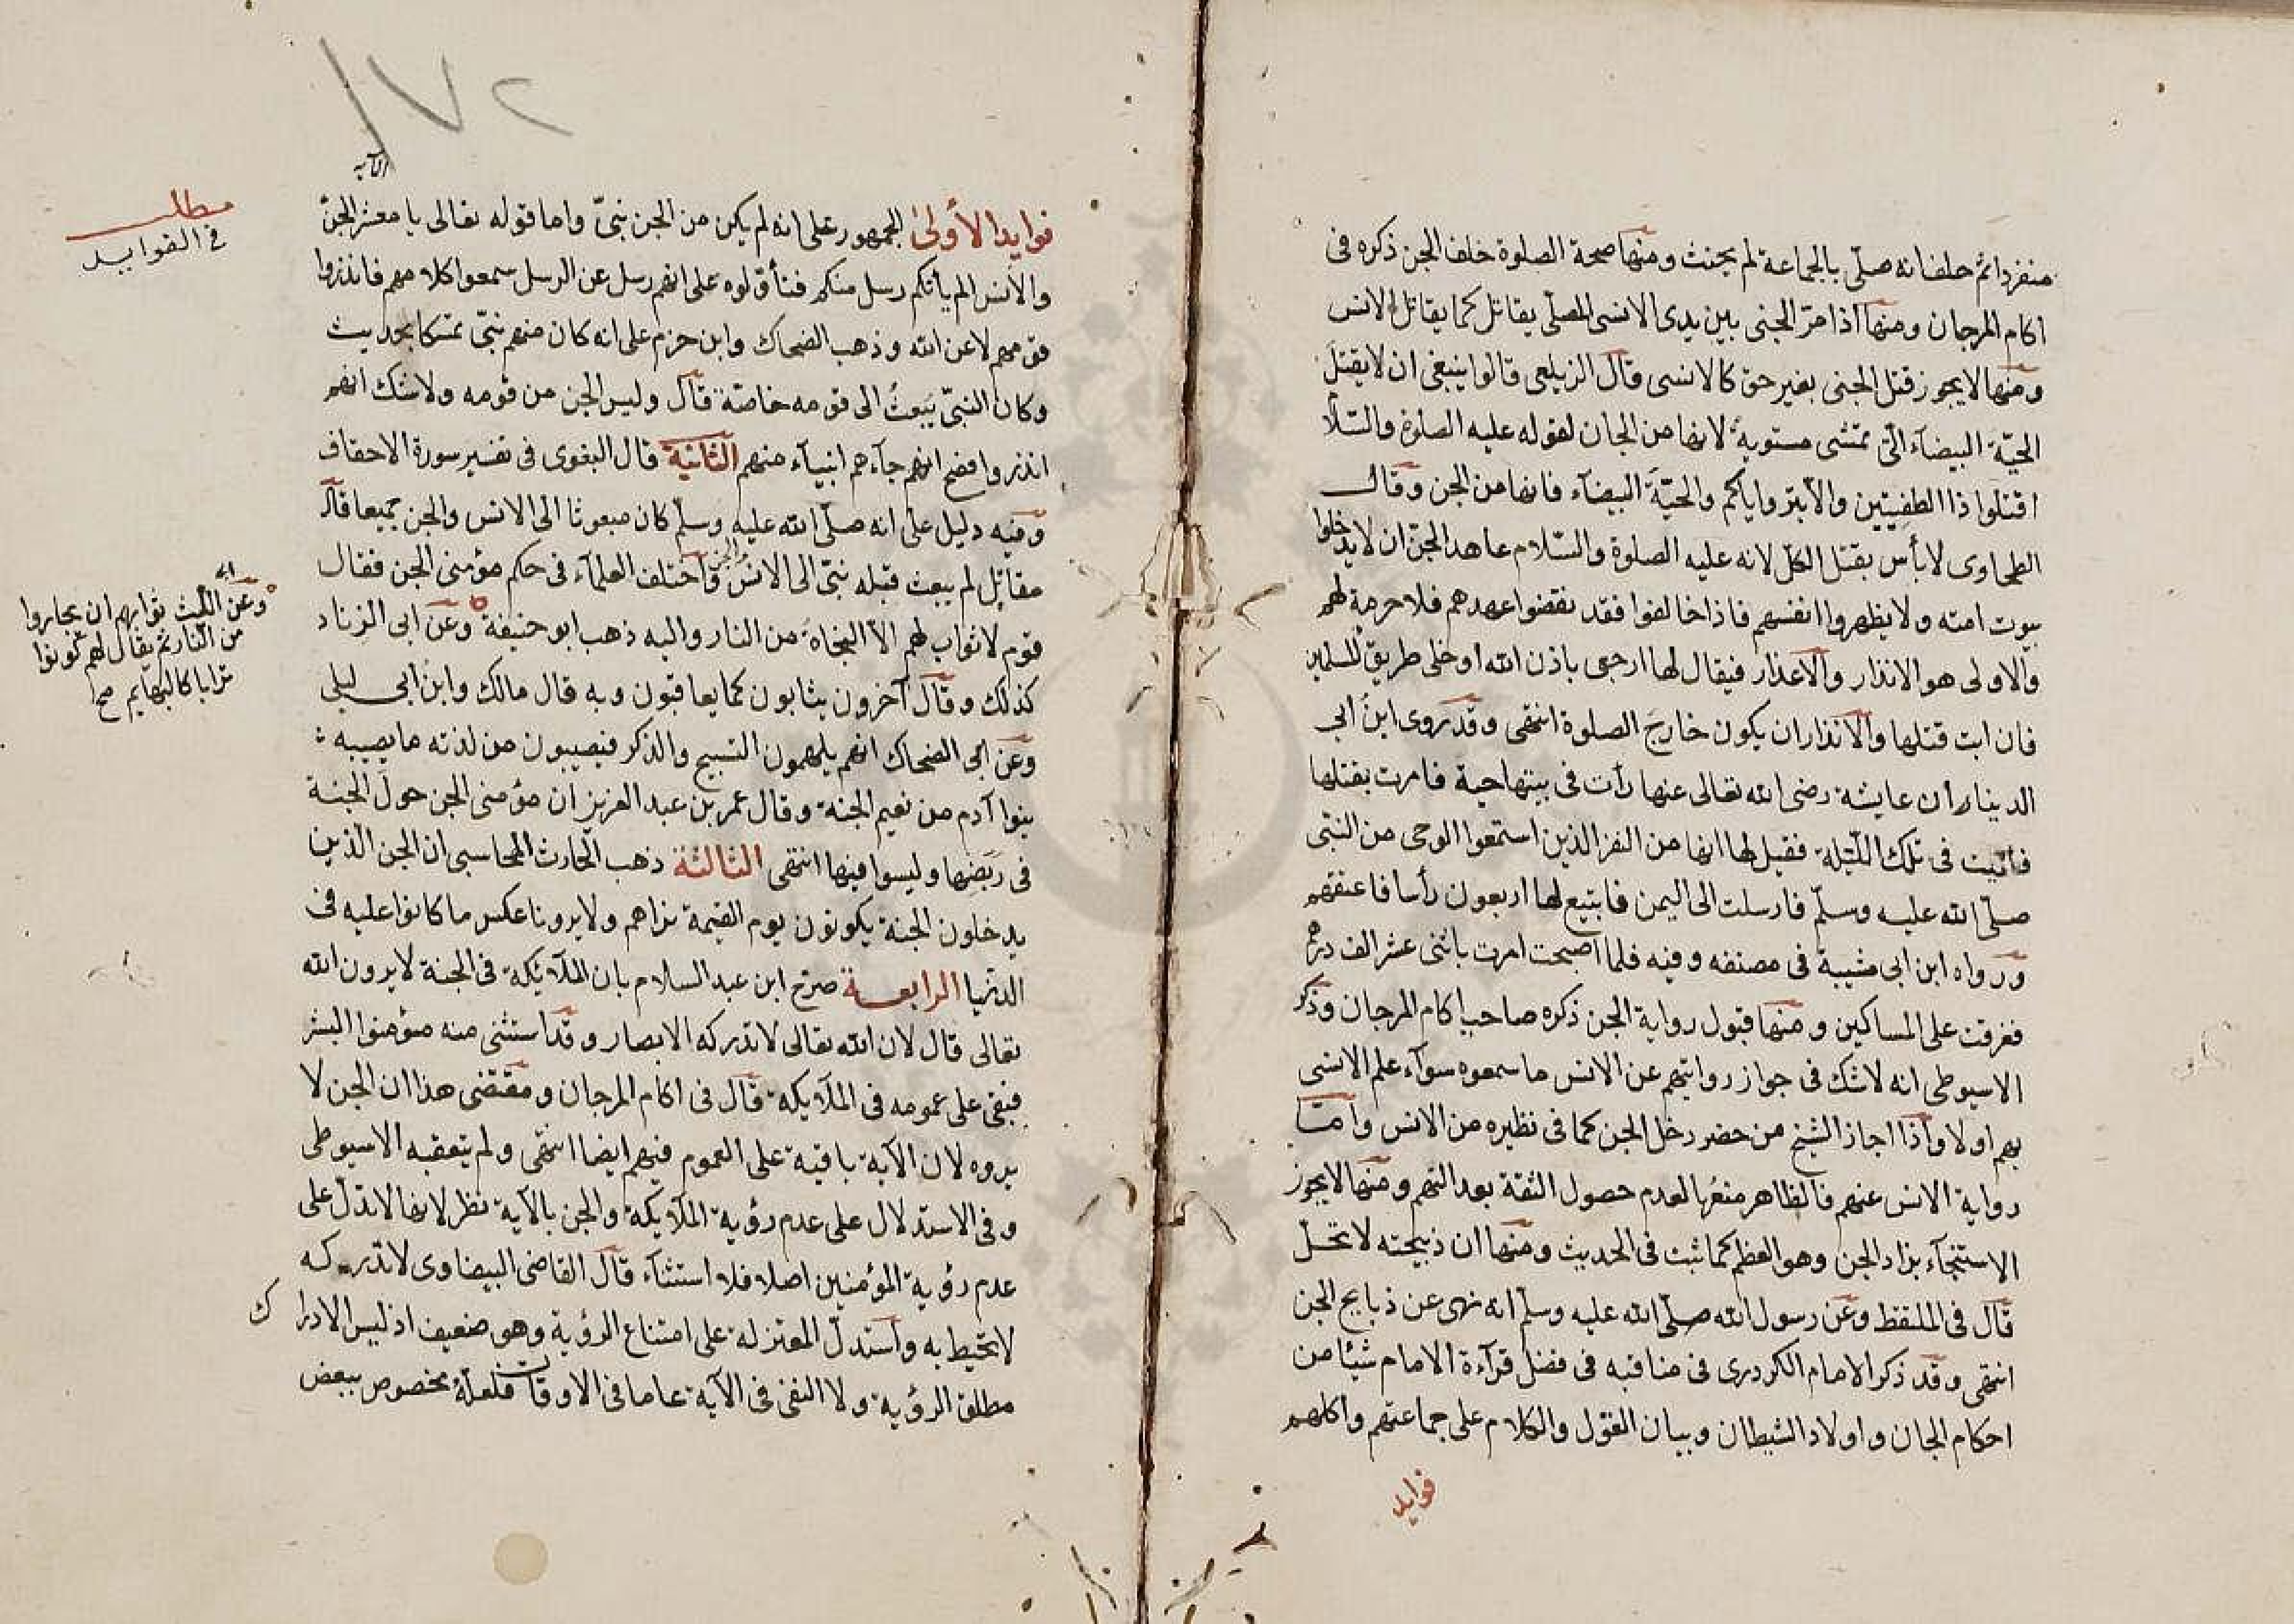 منفردا ثم حلف انه صلّى بالجماعة لم يحنث ومنها صحة الصلوة خلف الجن ذكره فى
اكام المرجان ومنها اذا مرّ الجنى بين يدى الانسى المصلّى يقاتل كما يقاتل الانس
ومنها لا يجوز قتل الجنى بغير حق كالانسى قال الزيلعى قالوا ينبغى ان لا يقتل
الحيّة البيضآء الّتى تمتشى مستوية لانها من الجان لقوله عليه الصلوة والسّلا
اقتلوا ذا الطفيتين والابتر واياكم والحيّة البيضآء فانها من الجن وقال
الطحاوى لا بأس بقتل الكلّ لانه عليه الصلوة والسّلام عاهد الجنّ ان لا يدخلوا
بيوت امته ولا يظهروا انفسهم فاذا خالفوا فقد نقضوا عهدهم فلا حرمة لهم
والاولى هو الانذار والاعذار فيقال لها ارجعى باذن الله او خلى طريق المسلمين
فان ابت قتلها والانذار ان يكون خارج الصلوة انتهى وقد روى ابنُ ابى
الدينار ان عايشة رضى الله تعالى عنها رأت فى بيتها حية فامرت بقتلها
فاتيت فى تلك اللّيلة فقيل لها انها من النفر الذين استمعوا الوحى من النبّى
صلّى الله عليه وسلّم فارسلت الى اليمن فابتيع لها اربعون رأسا فاعتقتهم
ورواه ابن ابى شيبة فى مصنفه وفيه فلما اصبحت امرت باثنى عشر الف درهم
ففرقت على المساكين ومنها قبول رواية الجن ذكره صاحب اكام المرجان وذكر
الاسيوطى انه لا شك فى جواز روايتهم عن الانس ما سمعوه سوآء علم الانسى
بهم اولا واذا اجاز الشيخ من حضر دخل الجن كما فى نظيره من الانس وامّا
رواية الانس عنهم فالظاهر منعُها لعدم حصول الثقة بعدالتهم ومنها لا يجوز
الاستنجآء بزاد الجن وهو العظم كما ثبت فى الحديث ومنها ان ذبيحته لا تحلّ
قال فى الملتقط وعن رسول الله صلّى الله عليه وسلّم انه نهى عن ذبايح الجن
انتهى وقد ذكر الامام الكردرى فى مناقبه فى فضل قرآءة الامام شيئا من
احكام الجان واولاد الشيطان وبيان القول والكلام على جماعتهم واكلهم
فوايد
١٧٢
الآية
فوايد الأولىٰ الجمهور على انه لم يكن من الجن نبىّ واما قوله تعالى يا معشر الجنّ
والانس الم يأتكم رسل منكم فتأوّلوه على انهم رسل عن الرسل سمعوا كلامهم فانذروا
قومهم لا عن الله وذهب الضحاك وابن حزم على انه كان منهم نبىّ تمسّكا بحديث
وكان النبىّ يبعثُ الى قومه خاصّة قال وليس الجن من قومه ولا شك انهم
انذروا فصح انهم جآءهم انبيآء منهم الثانية قال البغوى فى تفسير سورة الاحقاف
وفيه دليل على انه صلّى الله عليه وسلّم كان مبعوثا الى الانس والجن جميعا قال
مقاتل لم يبعث قبله نبىّ الى الانس والجن واختلف العلمآء فى حكم مؤمنى الجن فقال
قوم لا ثواب لهم الاّ النجاة من النار واليه ذهب ابو حنيفة وعن ابى الزناد
كذلك وقال آخرون يثابون كما يعاقبون وبه قال مالك وابن ابى ليلى
وعن ابى الضحاك انهم يلهمون التسبيح والذكر فيصيبون من لذته ما يصيبه
بنوا آدم من نعيم الجنة وقال عمر بن عبد العزيز ان مؤمنى الجن حول الجنة
فى ربضها وليسوا فيها انتهى الثالثة ذهب الحارث المحاسبى ان الجن الّذين
يدخلون الجنة يكونون يوم القيمة نراهم ولا يرونا عكس ما كانوا عليه فى
الدنيا الرابعة صرّح ابن عبد السلام بان الملآئكة فى الجنة لا يرون الله
تعالى قال لان الله تعالى لا تدركه الابصار وقد استثنى منه مؤمنوا البشر
فبقى على عمومه فى الملآيكة قال فى اكام المرجان ومقتضى هذا ان الجن لا
يروه لان الآية باقية على العموم فيهم ايضا انتهى ولم يتعقبه الاسيوطى
وفى الاستدلال على عدم رؤية الملآيكة والجن بالآية نظر لانها لا تدلّ على
عدم رؤية المؤمنين اصلا فلا استثنآء قال القاضى البيضاوى لا تدركه
لا تحيط به واستدلّ المعتزلة على امتناع الرؤية وهو ضعيف اذ ليس الادراك
مطلق الرؤية ولا النفى فى الآية عاما فى الاوقات فلعلّه مخصوص ببعض
مطلب
فى الفوايد
وعن اللّيث ثوابهم ان يجاروا
من النّار ثم يقال لهم كونوا
ترابا كالبهايم صح